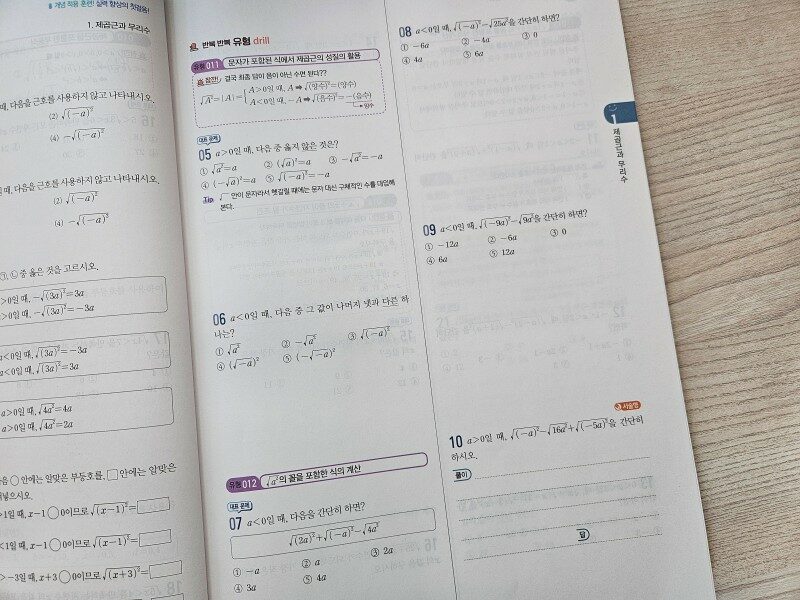 개념 적용 훈련! 실력 향상의 첫걸음!
1. 제곱근과 무리수
때, 다음을 근호를 사용하지 않고 나타내시오.
(2) √(-a)²
(4) -√(-a)²
일 때, 다음을 근호를 사용하지 않고 나타내시오.
(2) √(-a)²
(4) -√(-a)²
㉠, ㉡ 중 옳은 것을 고르시오.
>0일 때, -√(3a)²=3a
>0일 때, -√(3a)²=-3a
a<0일 때, √(3a)²=-3a
a<0일 때, √(3a)²=3a
a>0일 때, √4a²=4a
a>0일 때, √4a²=2a
음 ○ 안에는 알맞은 부등호를, □ 안에는 알맞은
써넣으시오.
>1일 때, x-1○0이므로 √(x-1)²=□
<1일 때, x-1○0이므로 √(x-1)²=□
>-3일 때, x+3○0이므로 √(x+3)²=□
반복 반복 유형 drill
유형 011 문자가 포함된 식에서 제곱근의 성질의 활용
잠깐! 결국 최종 답이 음이 아닌 수면 된다??
√A²=|A|={A>0일 때, A ⇒ √(양수)²=(양수)
A<0일 때, -A ⇒ √(음수)²=-(음수)
양수
대표 문제
05 a>0일 때, 다음 중 옳지 않은 것은?
① √a²=a ② (√a)²=a ③ -√a²=-a
④ (-√a)²=a ⑤ √(-a)²=-a
Tip √ 안이 문자라서 헷갈릴 때에는 문자 대신 구체적인 수를 대입해
본다.
06 a<0일 때, 다음 중 그 값이 나머지 넷과 다른 하
나는?
① √a² ② -√a² ③ √(-a)²
④ (√-a)² ⑤ (-√-a)²
유형 012 √a²의 꼴을 포함한 식의 계산
대표 문제
07 a<0일 때, 다음을 간단히 하면?
√(2a)²+√(-a)²-√4a²
① -a ② a ③ 2a
④ 3a ⑤ 4a
08 a<0일 때, √(-a)²-√25a²을 간단히 하면?
① -6a ② -4a ③ 0
④ 4a ⑤ 6a
09 a<0일 때, √(-9a)²-√9a²을 간단히 하면?
① -12a ② -6a ③ 0
④ 6a ⑤ 12a
서술형
10 a>0일 때, √(-a)²-√16a²+√(-5a)²을 간단히
하시오.
풀이
답
1
제곱근과 무리수